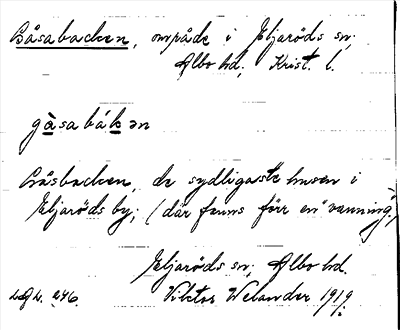 Gåsabacken, område i Eljaröds sn;
Albo hd, Krist. l.
gàsabákən
Gåsbacken, de sydligaste husen i
Eljaröds by; (där fanns förr en "vanning".)
Eljaröds sn; Albo hd.
246. Viktor Welander 1919.